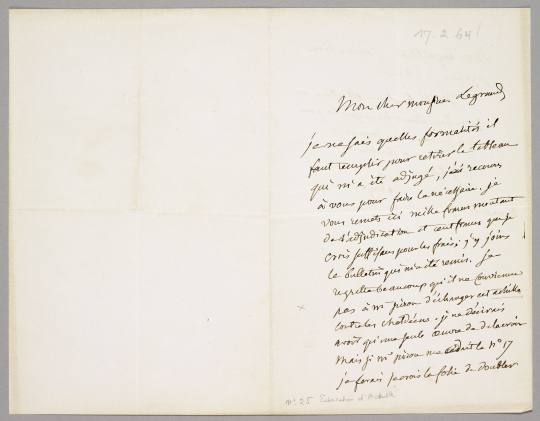 17.2.64
Mon cher monsieur Legrand
je ne sais quelles formalités il
faut remplir pour retirer le tableau
qui m'a été adjugé, j'ai recours
à vous pour faire le nécessaire. je
vous remets ici mille francs montant
de l'adjudication et cent francs que je
crois suffisans pour les frais; j'y joins
le bulletin qui m'a été remis. Je
regrette beaucoup qu'il ne convienne
pas à mr piron d'échanger cet achille
contre les chaldéens. je ne désirais
avoir qu'une seule œuvre de delacroix
mais si mr piron me cédait le no 17
je ferais je crois la folie de doubler
No 25 Education d'Achille